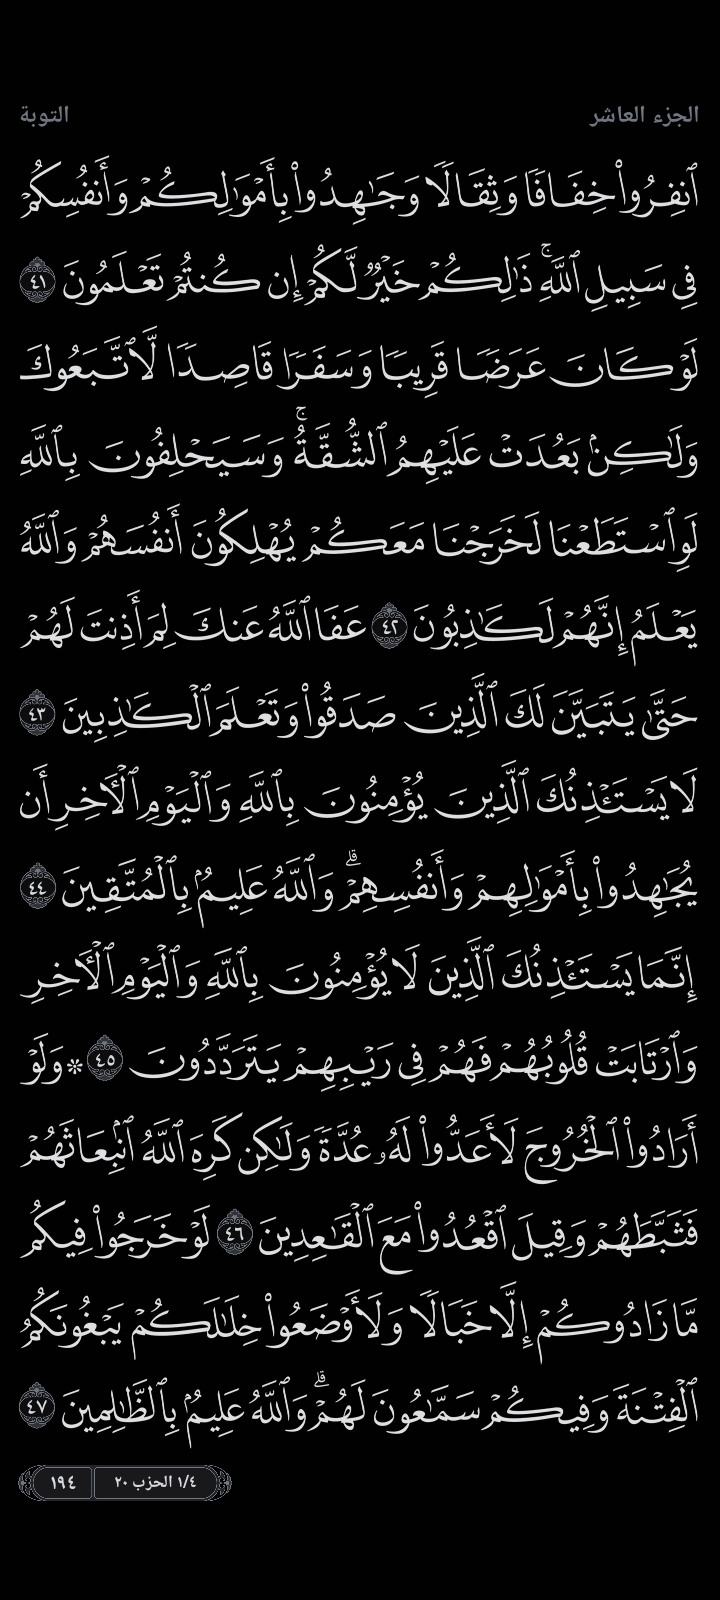 الجزء العاشر
التوبة
ٱنفِرُوا۟ خِفَافًا وَثِقَالًا وَجَـٰهِدُوا۟ بِأَمْوَٰلِكُمْ وَأَنفُسِكُمْ
فِى سَبِيلِ ٱللَّهِ ۚ ذَٰلِكُمْ خَيْرٌ لَّكُمْ إِن كُنتُمْ تَعْلَمُونَ ٤١
لَوْ كَانَ عَرَضًا قَرِيبًا وَسَفَرًا قَاصِدًا لَّٱتَّبَعُوكَ
وَلَـٰكِنۢ بَعُدَتْ عَلَيْهِمُ ٱلشُّقَّةُ ۚ وَسَيَحْلِفُونَ بِٱللَّهِ
لَوِ ٱسْتَطَعْنَا لَخَرَجْنَا مَعَكُمْ يُهْلِكُونَ أَنفُسَهُمْ وَٱللَّهُ
يَعْلَمُ إِنَّهُمْ لَكَـٰذِبُونَ ٤٢ عَفَا ٱللَّهُ عَنكَ لِمَ أَذِنتَ لَهُمْ
حَتَّىٰ يَتَبَيَّنَ لَكَ ٱلَّذِينَ صَدَقُوا۟ وَتَعْلَمَ ٱلْكَـٰذِبِينَ ٤٣
لَا يَسْتَـْٔذِنُكَ ٱلَّذِينَ يُؤْمِنُونَ بِٱللَّهِ وَٱلْيَوْمِ ٱلْـَٔاخِرِ أَن
يُجَـٰهِدُوا۟ بِأَمْوَٰلِهِمْ وَأَنفُسِهِمْ ۗ وَٱللَّهُ عَلِيمٌۢ بِٱلْمُتَّقِينَ ٤٤
إِنَّمَا يَسْتَـْٔذِنُكَ ٱلَّذِينَ لَا يُؤْمِنُونَ بِٱللَّهِ وَٱلْيَوْمِ ٱلْـَٔاخِرِ
وَٱرْتَابَتْ قُلُوبُهُمْ فَهُمْ فِى رَيْبِهِمْ يَتَرَدَّدُونَ ٤٥ * وَلَوْ
أَرَادُوا۟ ٱلْخُرُوجَ لَأَعَدُّوا۟ لَهُۥ عُدَّةً وَلَـٰكِن كَرِهَ ٱللَّهُ ٱنۢبِعَاثَهُمْ
فَثَبَّطَهُمْ وَقِيلَ ٱقْعُدُوا۟ مَعَ ٱلْقَـٰعِدِينَ ٤٦ لَوْ خَرَجُوا۟ فِيكُم
مَّا زَادُوكُمْ إِلَّا خَبَالًا وَلَأَوْضَعُوا۟ خِلَـٰلَكُمْ يَبْغُونَكُمُ
ٱلْفِتْنَةَ وَفِيكُمْ سَمَّـٰعُونَ لَهُمْ ۗ وَٱللَّهُ عَلِيمٌۢ بِٱلظَّـٰلِمِينَ ٤٧
١/٤ الحزب ٢٠
١٩٤